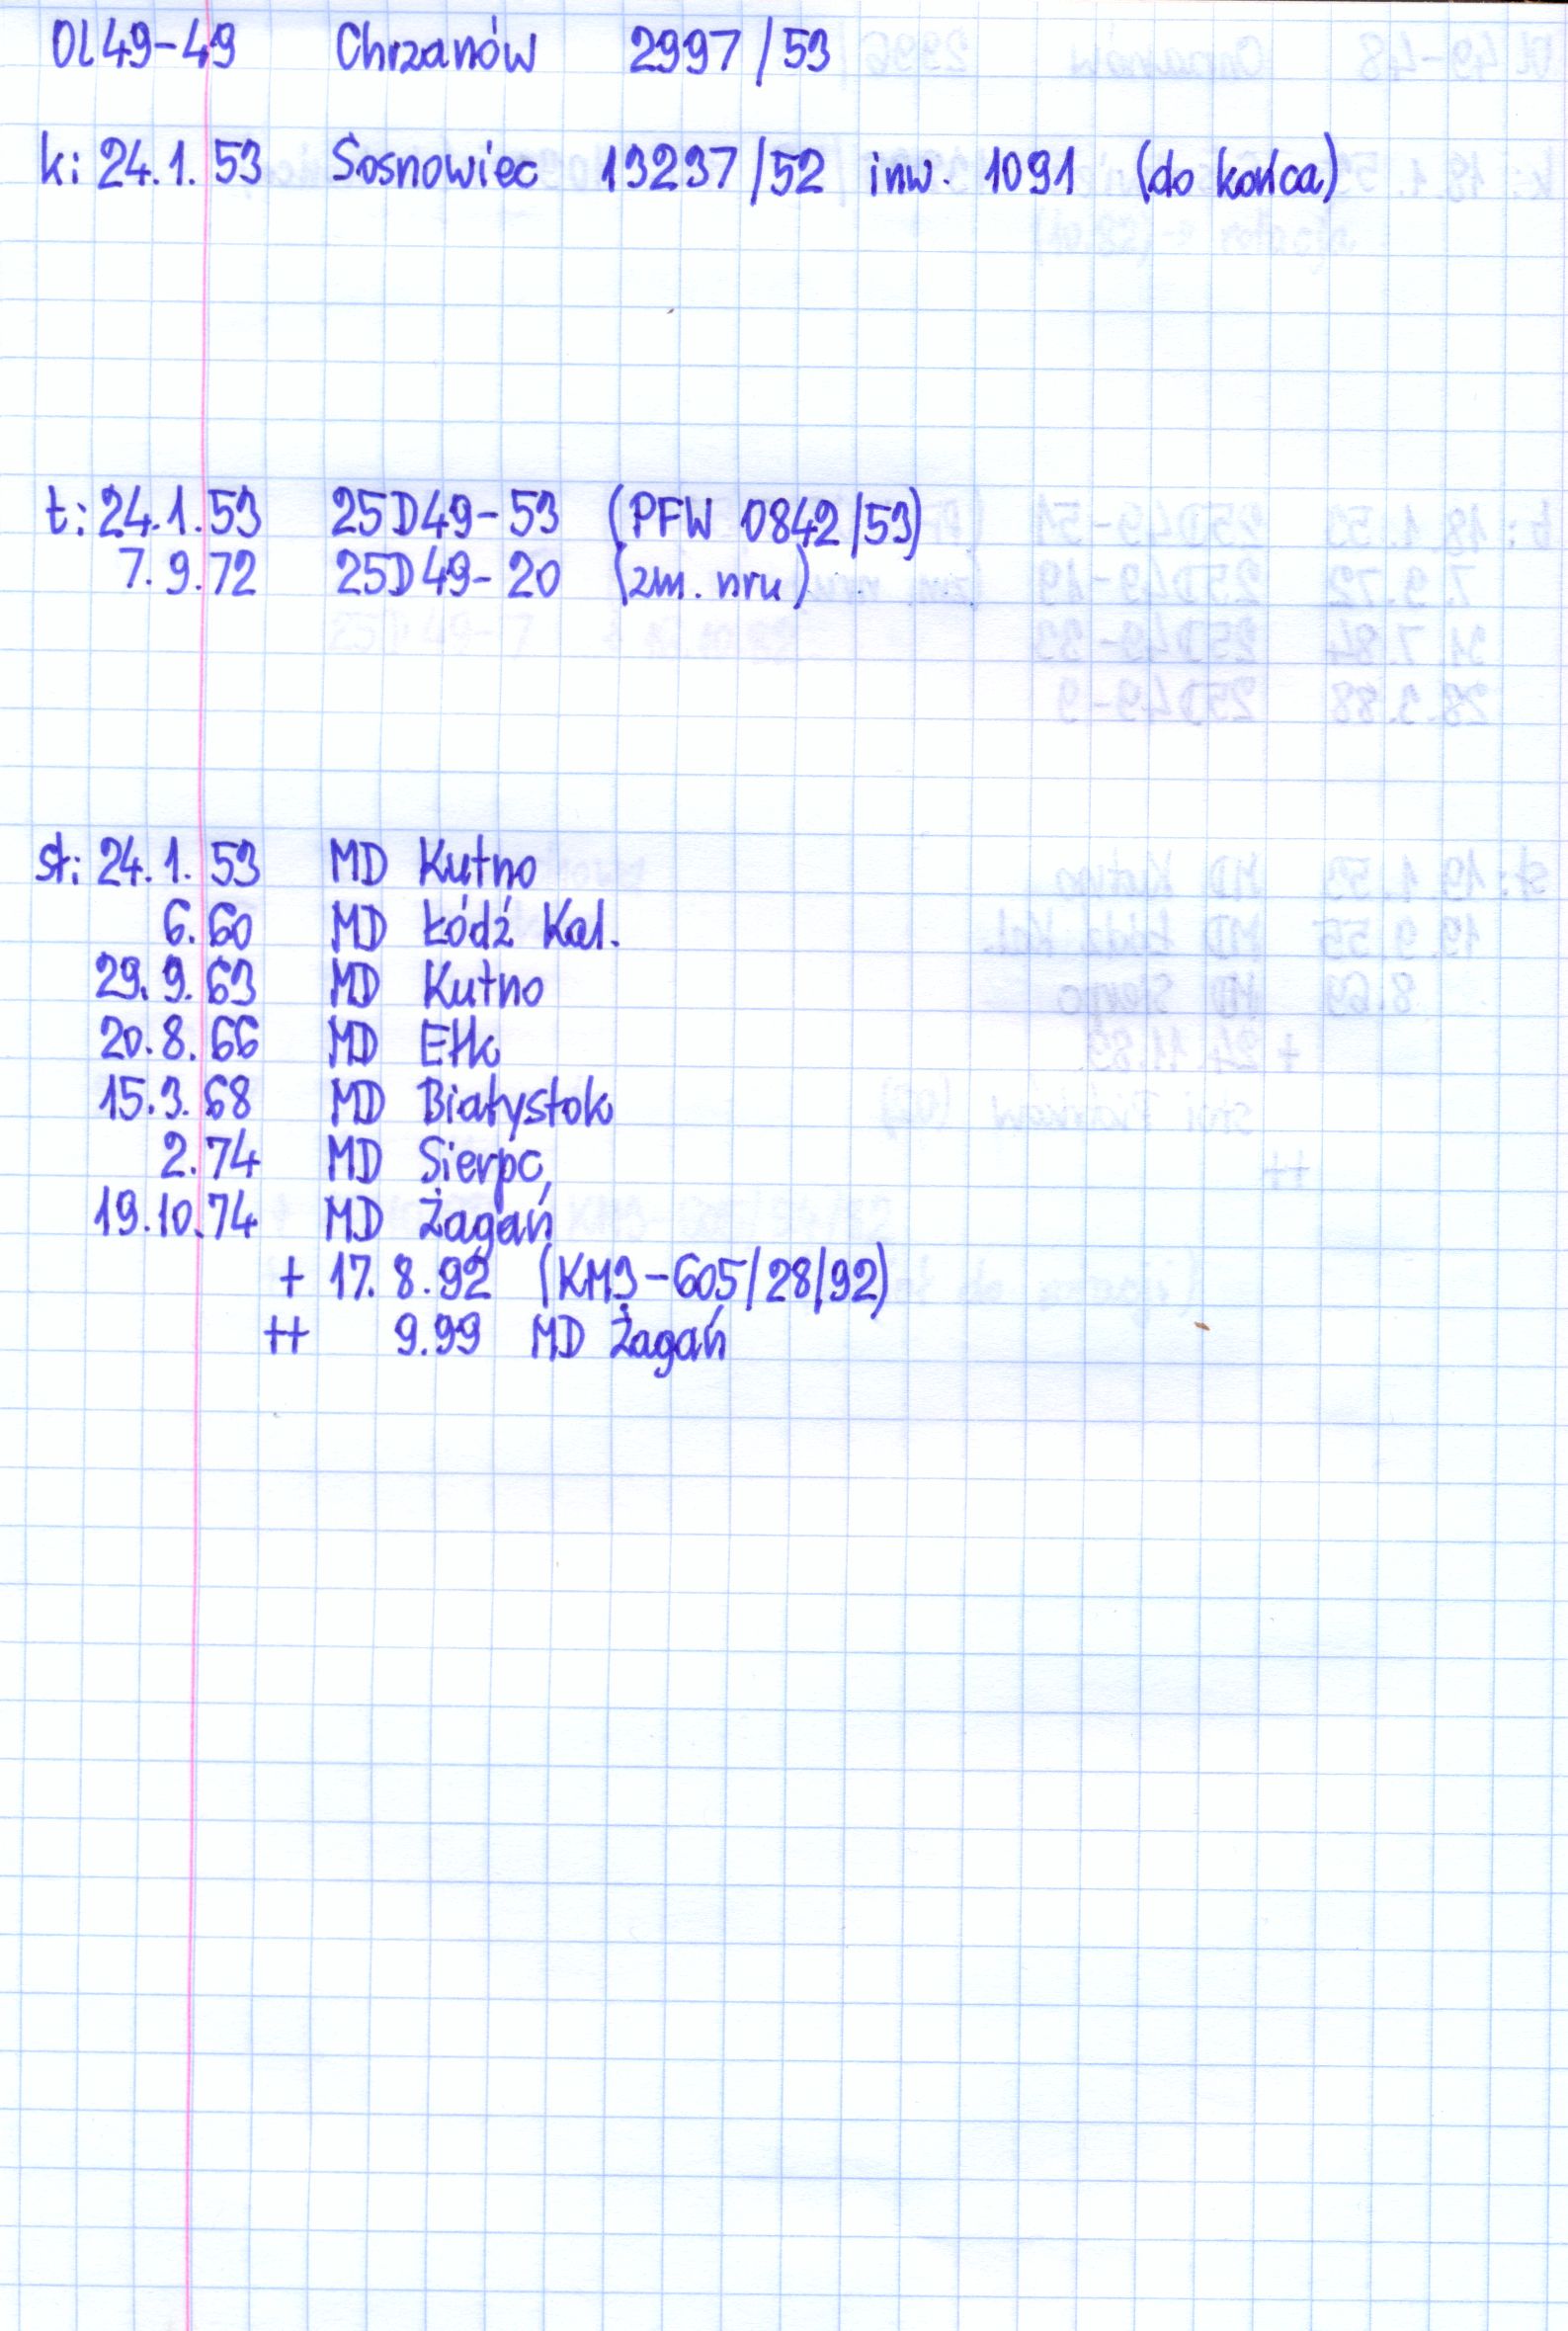 Ol49-49 Chrzanów 2997/53
k: 24.1.53 Sosnowiec 13237/52 inw. 1091 (do końca)
t: 24.1.53 25D49-53 (PFW 0842/53)
7.9.72 25D49-20 (zm. nru)
st: 24.1.53 MD Kutno
6.60 MD Łódź Kal.
29.9.63 MD Kutno
20.8.66 MD Ełk
15.3.68 MD Białystok
2.74 MD Sierpc,
19.10.74 MD Żagań
+ 17.8.92 (KM3-605/28/92)
++ 9.99 MD Żagań